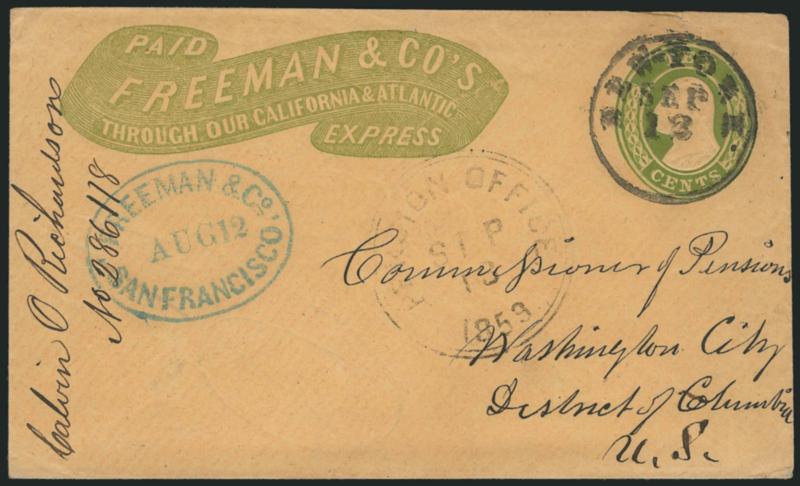 PAID
FREEMAN & CO'S
THROUGH OUR CALIFORNIA & ATLANTIC
EXPRESS
NEW-YORK
SEP
13
CENTS
FREEMAN & Co'
AUG 12
SAN FRANCISCO
PENSION OFFICE
SEP
13
1859
Calvin O Richardson
No 286,118
Commissioner of Pensions
Washington City
District of Columbia
U. S.